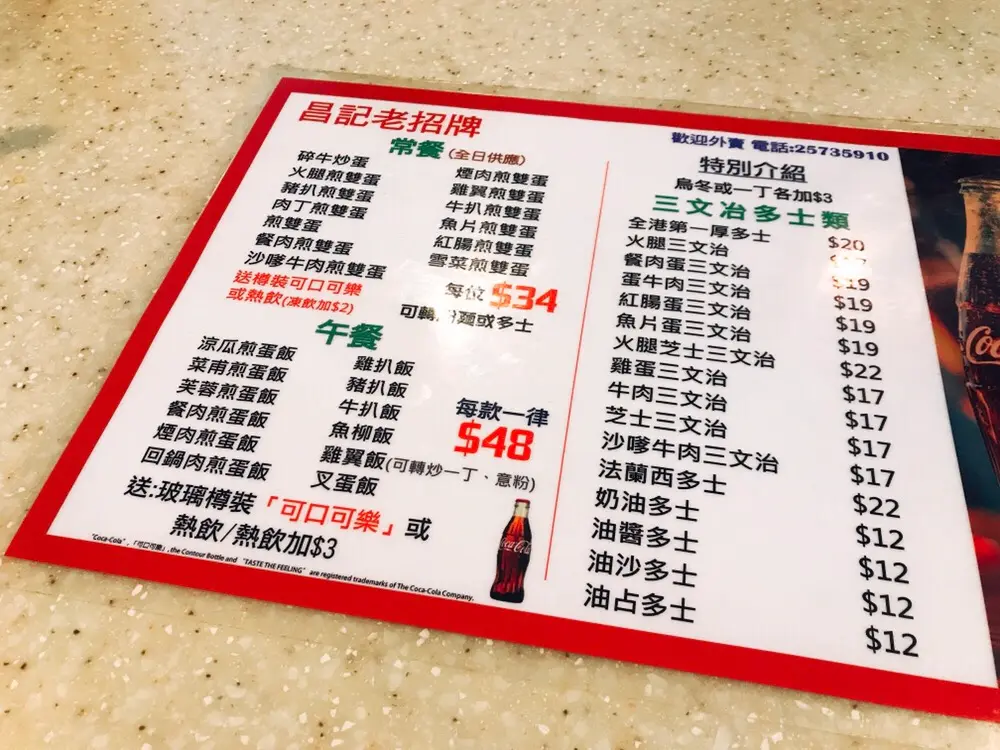 昌記老招牌
常餐(全日供應)
碎牛炒蛋
火腿煎雙蛋
豬扒煎雙蛋
肉丁煎雙蛋
煎雙蛋
餐肉煎雙蛋
沙嗲牛肉煎雙蛋
煙肉煎雙蛋
雞翼煎雙蛋
牛扒煎雙蛋
魚片煎雙蛋
紅腸煎雙蛋
雪菜煎雙蛋
送樽裝可口可樂
或熱飲(凍飲加$2)
每位 $34
可轉 麵或多士
午餐
涼瓜煎蛋飯
菜甫煎蛋飯
芙蓉煎蛋飯
餐肉煎蛋飯
煙肉煎蛋飯
回鍋肉煎蛋飯
雞扒飯
豬扒飯
牛扒飯
魚柳飯
雞翼飯
叉蛋飯
每款一律
$48
(可轉炒一丁、意粉)
送:玻璃樽裝「可口可樂」或
熱飲/熱飲加$3
"Coca-Cola", 「可口可樂」, the Contour Bottle and "TASTE THE FEELING" are registered trademarks of The Coca-Cola Company.
Coca-Cola
歡迎外賣 電話:25735910
特別介紹
烏冬或一丁各加$3
三文冶多士類
全港第一厚多士 $20
火腿三文治
餐肉蛋三文治 $19
蛋牛肉三文治 $19
紅腸蛋三文治 $19
魚片蛋三文治 $19
火腿芝士三文治 $22
雞蛋三文治 $17
牛肉三文治 $17
芝士三文治 $17
沙嗲牛肉三文治 $17
法蘭西多士 $22
奶油多士 $12
油醬多士 $12
油沙多士 $12
油占多士 $12